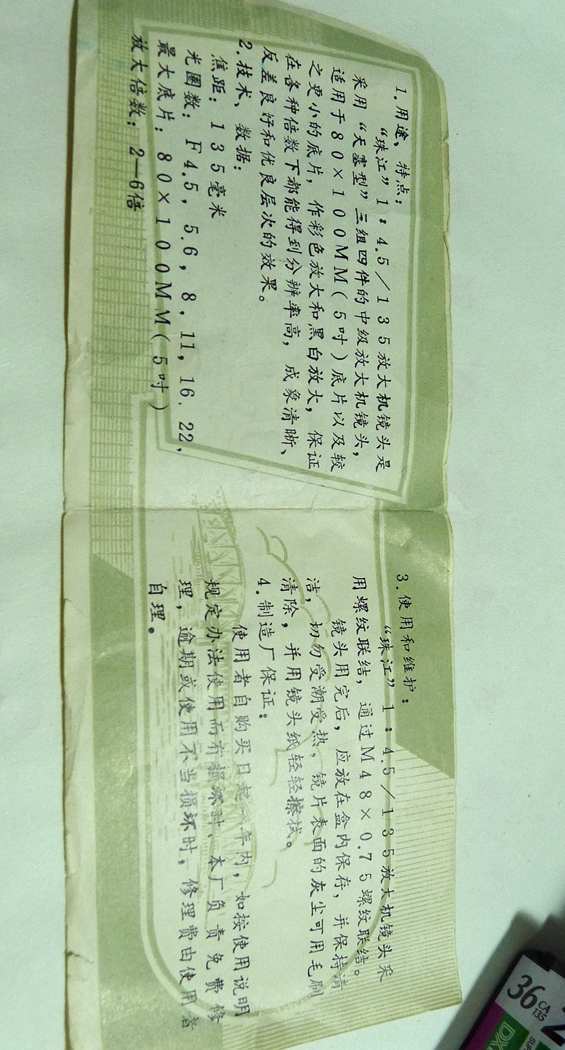 1.用途、特点：
“珠江”1：4.5／135放大机镜头是
采用“天塞型”三组四件的中级放大机镜头，
适用于80×100MM(5吋)底片以及较
之更小的底片，作彩色放大和黑白放大，保证
在各种倍数下都能得到分辨率高，成象清晰、
反差良好和优良层次的效果。
2.技术、数据：
焦距：135毫米
光圈数：F4.5，5.6，8，11，16．22，
最大底片：80×100MM(5吋)
放大倍数：2—6倍
3.使用和维护：
“珠江”1：4.5／135放大机镜头采
用螺纹联结，通过M48×0.75螺纹联结。
镜头用完后，应放在盒内保存，并保持清
洁，切勿受潮受热，镜片表面的灰尘可用毛刷
清除，并用镜头纸轻轻擦拭。
4.制造厂保证：
使用者自购买日起一年内，如按使用说明
规定办法使用而有损坏时，本厂负责免费修
理，逾期或使用不当损坏时，修理费由使用者
自理。
36
CA
135
DX